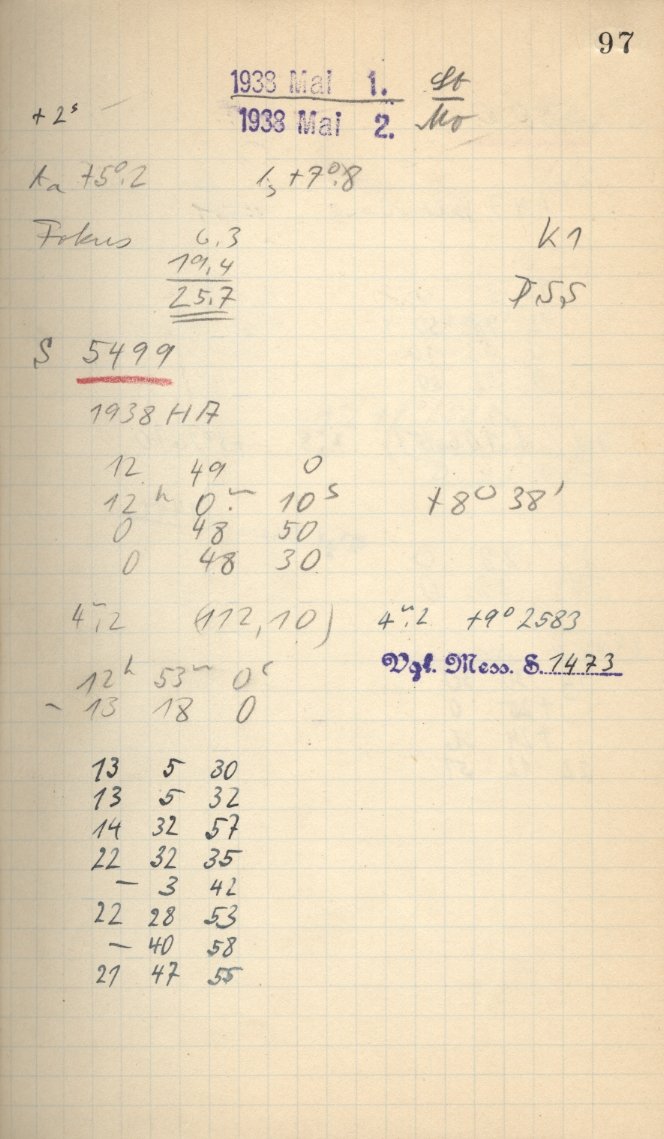 97
1938 Mai 1. St
1938 Mai 2. Mo
+2ˢ
tₐ +5°.2 +7°.8
Fokus 6.3
19.4
25.7
K1
S 5499
1938 HA
12 49 0
12ʰ 0ᵐ 10ˢ +8° 38'
0 48 50
0 48 30
4ᵐ.2 (112,10) 4ᵐ.2 +9° 2583
Vgl. Mess. S. 1473
12ʰ 53ᵐ 0ˢ
– 13 18 0
13 5 30
13 5 32
14 32 57
22 32 35
– 3 42
22 28 53
– 40 58
21 47 55